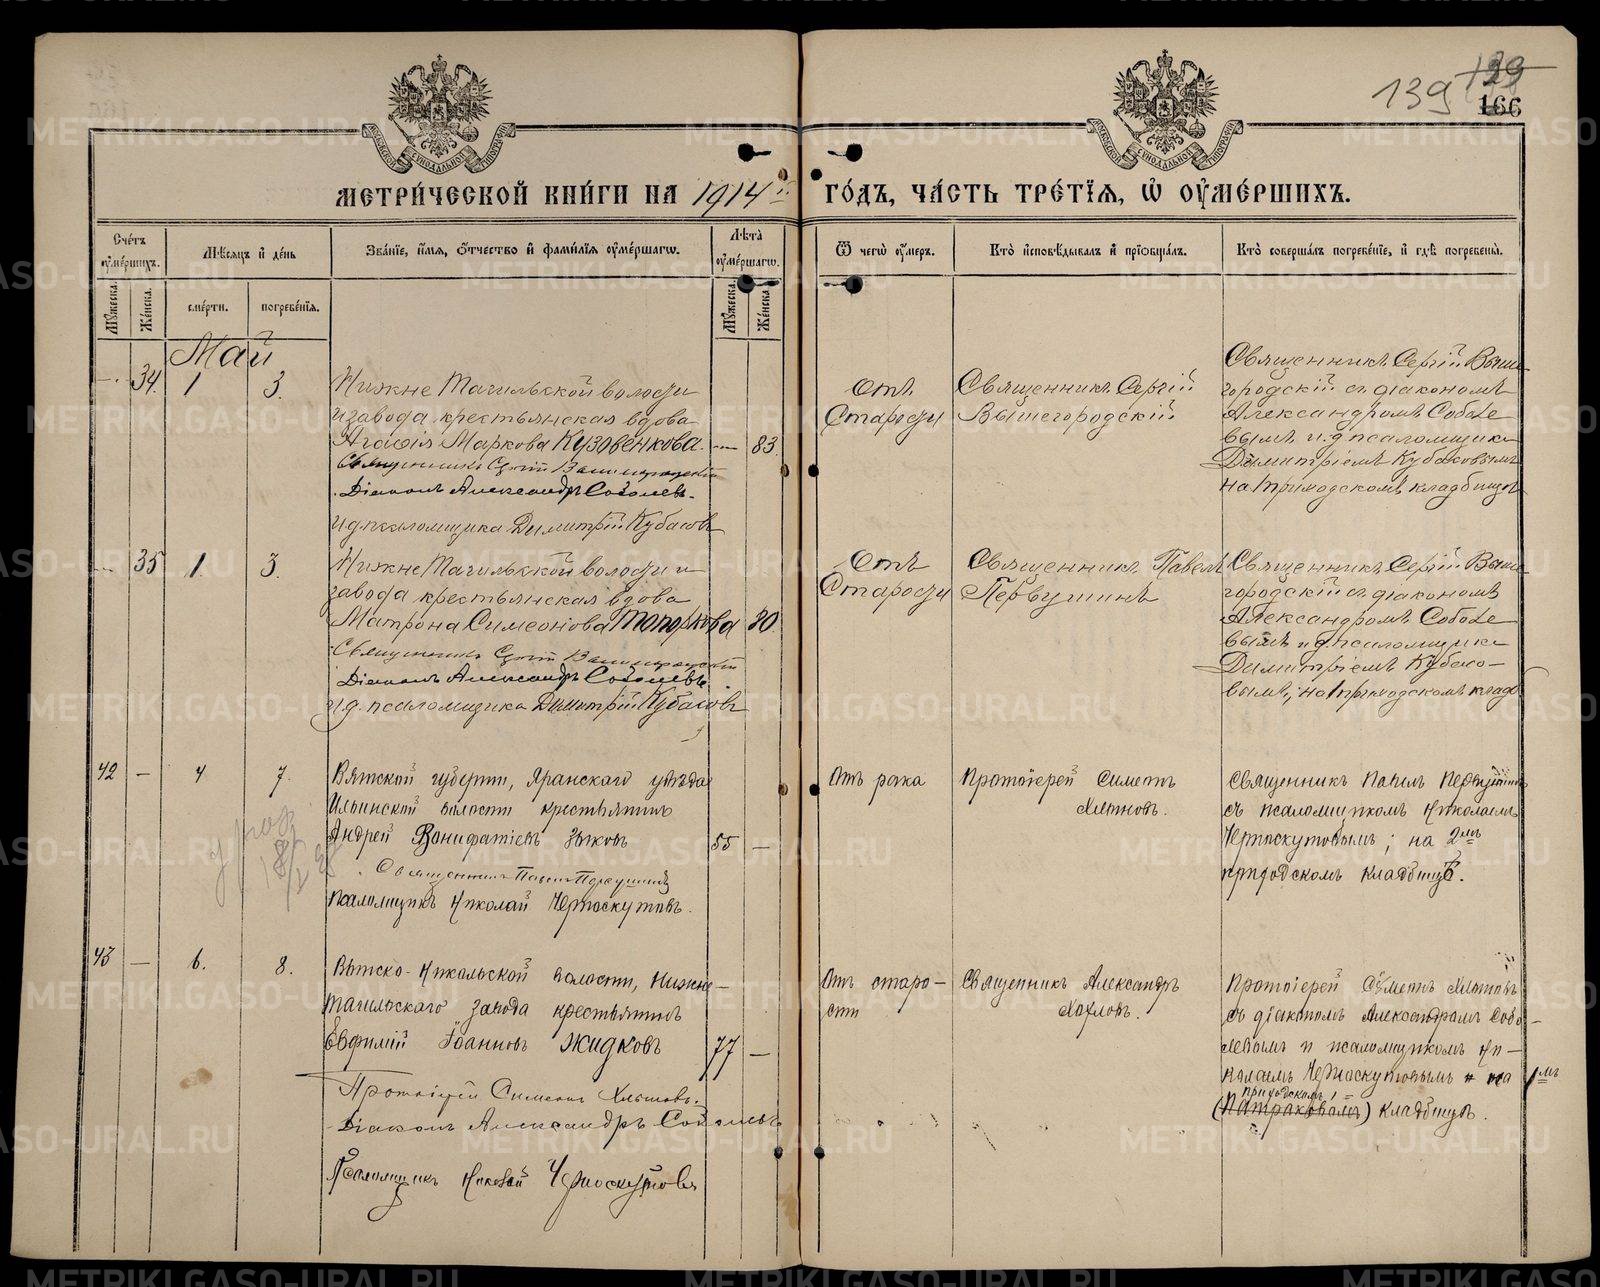 139 139
166
МЕТРИ́ЧЕСКОЙ КНИ́ГИ НА 1914й ГО́ДЪ, ЧА́СТЬ ТРЕ́ТІЯ, Ѡ ОУМЕ́РШИХЪ.
Сче́тъ оуме́ршихъ.
Мѣ́сяцъ и де́нь
Зва́ніе, и́мя, о́тчество и фами́лія оуме́ршагѡ.
Лѣ́та оуме́ршагѡ.
Ѿ чегѡ̀ оу́меръ.
Кто̀ исповѣ́дывалъ и пріобща́лъ.
Кто̀ соверша́лъ погребе́ніе, и гдѣ̀ погребены̀.
Му́жеска.
Же́нска.
сме́рти.
погребе́нія.
Му́жеска.
Же́нска.
Май
34. 1 3.
Нижне Тагильской волости
и завода крестьянская вдова
Агафія Маркова Кузовенкова. — 83.
Священникъ Сергій Вышегородскій
Діаконъ Александръ Соболевъ.
и.д. псаломщика Димитрій Кубасовъ
Отъ
Старости
Священникъ Сергій
Вышегородскій
Священникъ Сергій Выше
городскій съ діакономъ
Александромъ Соболе
вымъ и.д. псаломщика
Димитріемъ Кубасовымъ
на приходскомъ кладбищѣ
35 1. 3.
Нижне Тагильской волости и
завода крестьянская вдова
Матрона Симеонова Топоркова
Священникъ Сергій Вышегородскій
Діаконъ Александръ Соболевъ
и.д. псаломщика Димитрій Кубасовъ
Отъ
Старости
Священникъ Павелъ
Первушинъ
Священникъ Сергій Выше
городскій съ діакономъ
Александромъ Соболе
вымъ и.д. псаломщика
Димитріемъ Кубасо-
вымъ, на приходскомъ кладб
42 — 4 7.
Вятской губерніи, Яранскаго уѣзда
Ильинской волости крестьянинъ
Андрей Вонифатіевъ Зыковъ 55 —
Священникъ Павелъ Первушинъ
Псаломщикъ Николай Черноскутовъ.
Отъ рака
Протоіерей Симеонъ
Хлыновъ.
Священникъ Павелъ Первушинъ
съ псаломщикомъ Николаемъ
Черноскутовымъ; на 2мъ
приходскомъ кладбищѣ.
43 — 6. 8.
Выйско-Никольской волости, Нижне-
тагильскаго завода крестьянинъ
Евфимій Іоанновъ Жидковъ 77 —
Протоіерей Симеонъ Хлыновъ.
Діаконъ Александръ Соболевъ
Псаломщикъ Николай Черноскутовъ
Отъ старо-
сти
Священникъ Александръ
Хохловъ.
Протоіерей Симеонъ Хлыновъ
съ діакономъ Александромъ Собо-
левымъ и псаломщикомъ Ни-
колаемъ Черноскутовымъ на 1мъ
приходскомъ
кладбищѣ.